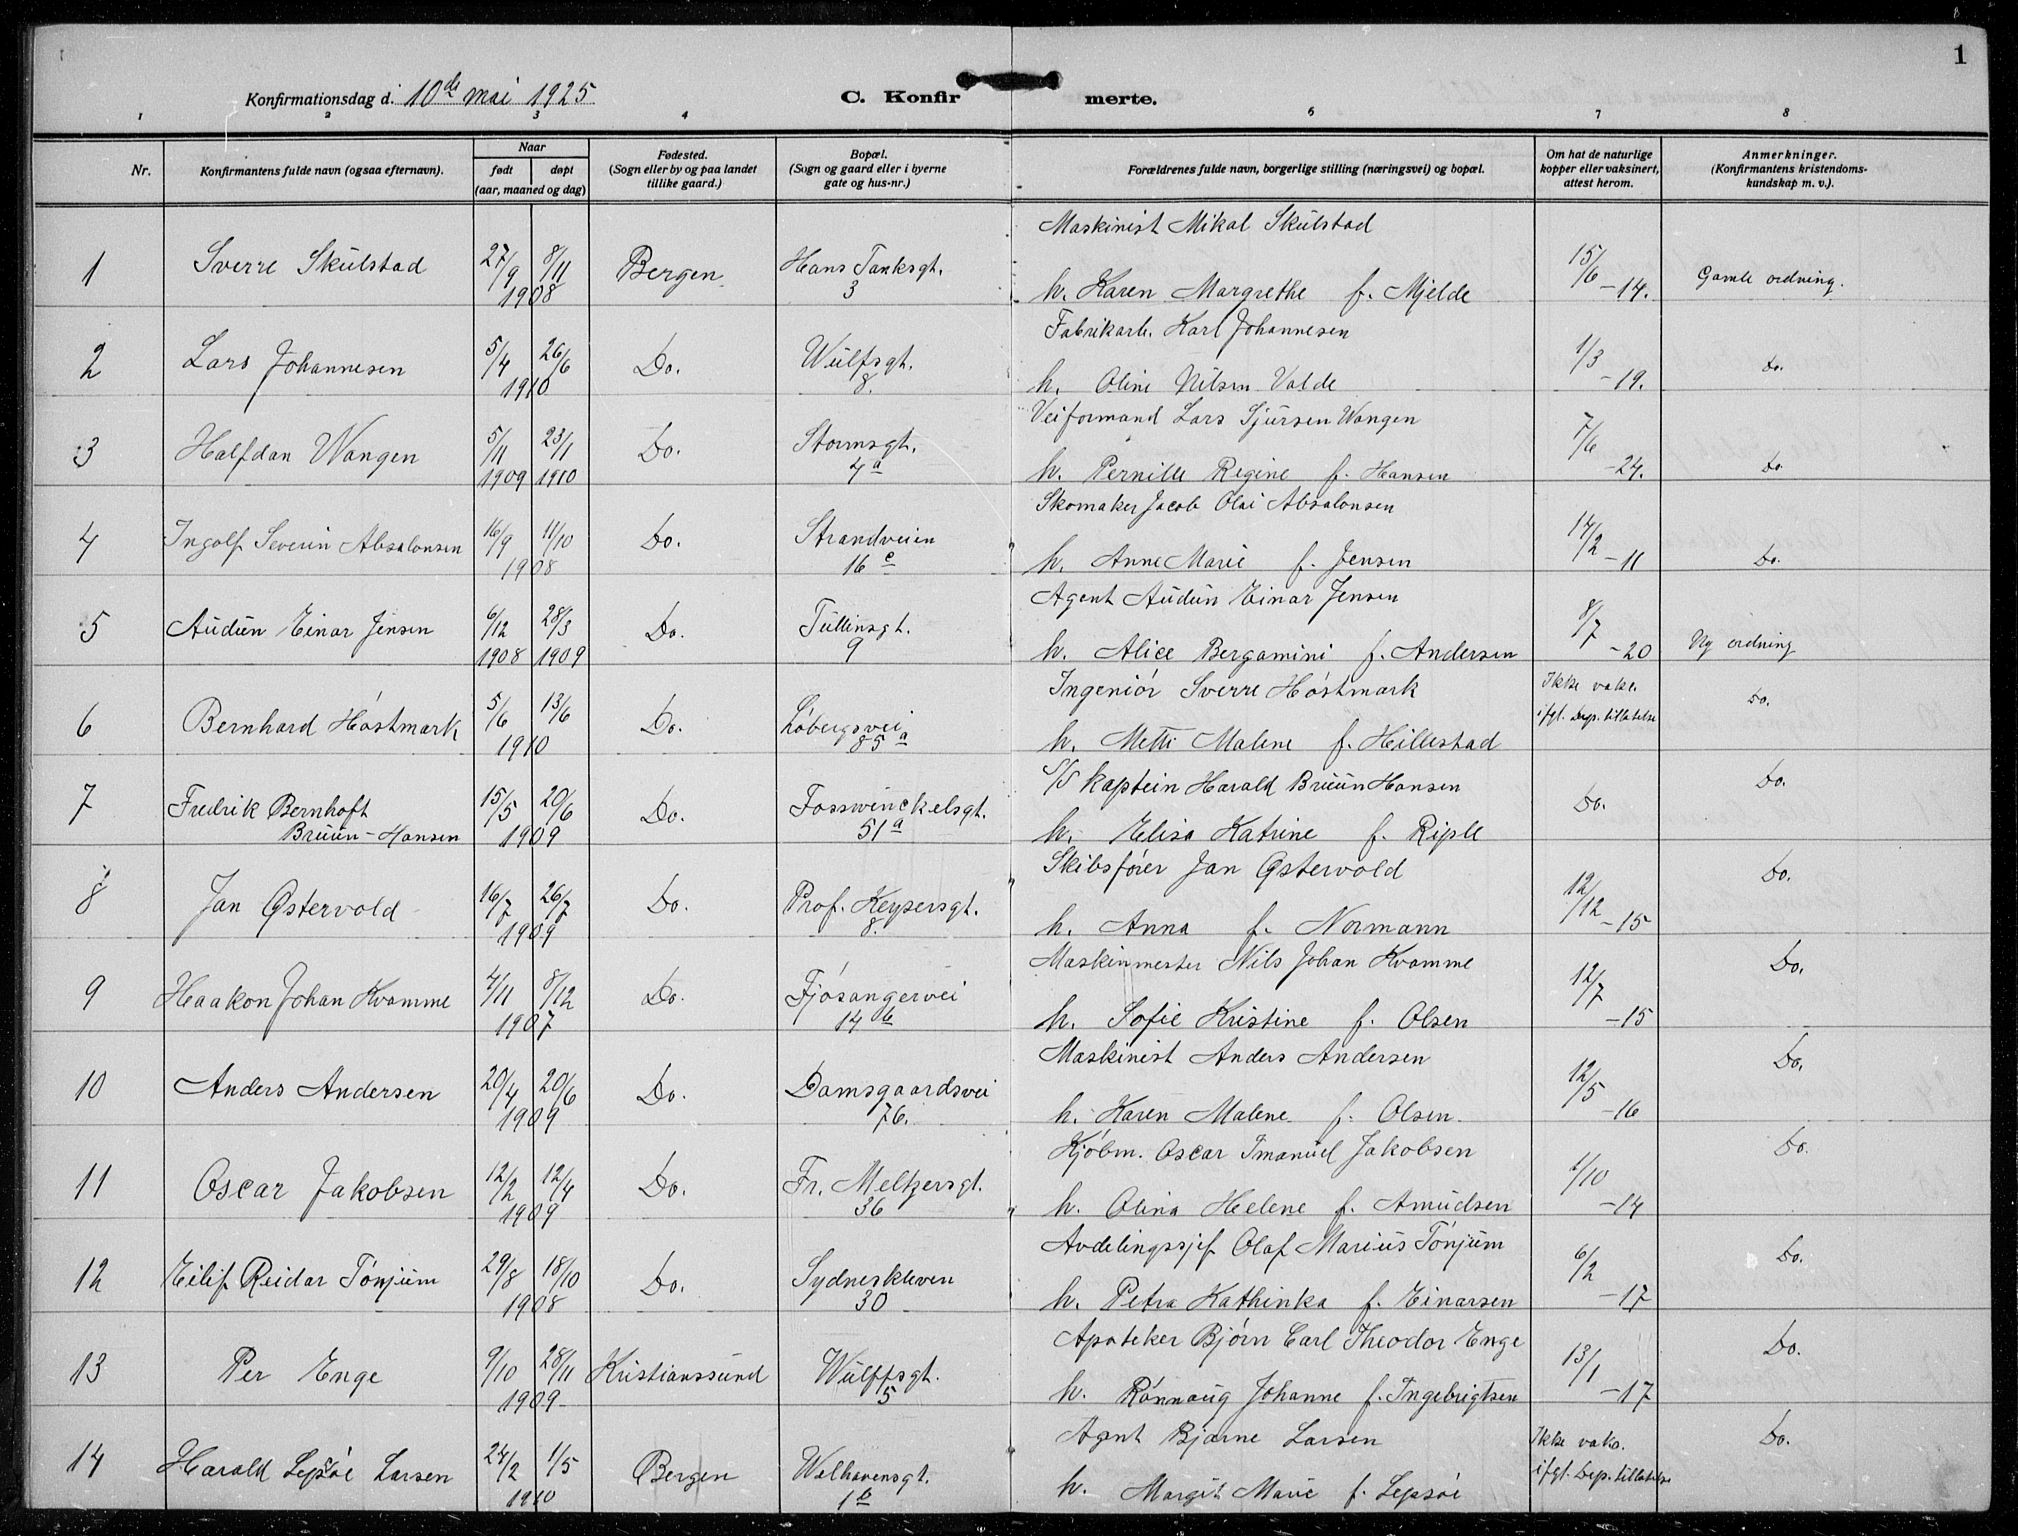 1
Konfirmationsdag d. 10de mai 1925
C. Konfirmerte.
1 2 3 4 6 7 8
Nr.
Konfirmantens fulde navn (ogsaa efternavn).
Naar
født døpt
(aar, maaned og dag)
Fødested.
(Sogn eller by og paa landet
tillike gaard.)
Bopæl.
(Sogn og gaard eller i byerne
gate og hus-nr.)
Forældrenes fulde navn, borgerlige stilling (næringsvei) og bopæl.
Om hat de naturlige
kopper eller vaksinert,
attest herom.
Anmerkninger.
(Konfirmantens kristendoms-
kundskap m. v.).
1 Sverre Skulstad 27/9 8/11 Bergen Hans Tanksgt.
1908 3
Maskinist Mikal Skulstad
h. Karen Margrethe f. Mjelde 15/6 -14. Gamle ordning.
2 Lars Johannesen 5/4 26/6 Do. Wulfsgt.
1910 8.
Fabrikarb. Karl Johannesen
h. Oline Nilsen Valde 1/3 -19. Do.
3 Halfdan Wangen 5/11 23/1 Do. Stormsgt.
1909 1910 4a
Veiformand Lars Sjursen Wangen
h. Pernille Regine f. Hansen 7/6 -24. Do
4 Ingolf Severin Absalonsen 16/9 11/10 Do. Strandveien
1908 16c
Skomaker Jacob Olai Absalonsen
h. Anne Marie f. Jensen 14/2 -11 Do.
5 Audun Einar Jensen 6/12 28/3 Do. Tullinsgt.
1908 1909 9
Agent Audun Einar Jensen
h. Alice Bergamini f. Andersen 8/7 -20 Ny ordning
6 Bernhard Høstmark 5/6 13/6 Do. Løbergsvei
1910 85a
Ingeniør Sverre Høstmark
h. Metti Malene f. Hillestad
Ikke vaks.
ifgl. Dep. tillatelse Do.
7 Fredrik Bernhoft 15/5 20/6 Do. Fosswinckelsgt.
Bruun-Hansen 1909 51a
S/S kaptein Harald Bruun Hansen
h. Elisa Katrine f. Riple Do. Do.
8 Jan Østervold 16/7 26/7 Do. Prof. Keysersgt.
1909 8.
Skibsfører Jan Østervold
h. Anna f. Normann 12/12 -15 Do.
9 Haakon Johan Kvamme 4/11 8/12 Do. Fjøsangervei
1907 14b
Maskinmester Nils Johan Kvamme
h. Sofie Kristine f. Olsen 12/7 -15 Do.
10 Anders Andersen 20/4 20/6 Do. Damsgaardsvei
1909 76.
Maskinist Anders Andersen
h. Karen Malene f. Olsen. 12/5 -16 Do.
11 Oscar Jakobsen 12/2 12/4 Do. Fr. Meltzersgt.
1909 36
Kjøbm. Oscar Imanuel Jakobsen
h. Olina Helene f. Amudsen 1/10 -14 Do.
12 Eilif Reidar Tønjum 29/8 18/10 Do. Sydneskleven
1908 30
Avdelingssjef Olaf Marius Tønjum
h. Petra Kathinka f. Einarsen 6/2 -17 Do.
13 Per Enge 9/10 28/11 Kristianssund Wulffsgt.
1909 5
Apoteker Bjørn Carl Theodor Enge
h. Rønnaug Johanne f. Ingebrigtsen 13/1 -17 Do.
14 Harald Lepsøe Larsen 24/2 1/5 Bergen Welhavensgt.
1910 1b
Agent Bjarne Larsen
h. Margit Marie f. Lepsøe
Ikke vaks.
ifgl. Dep. tillatelse Do.